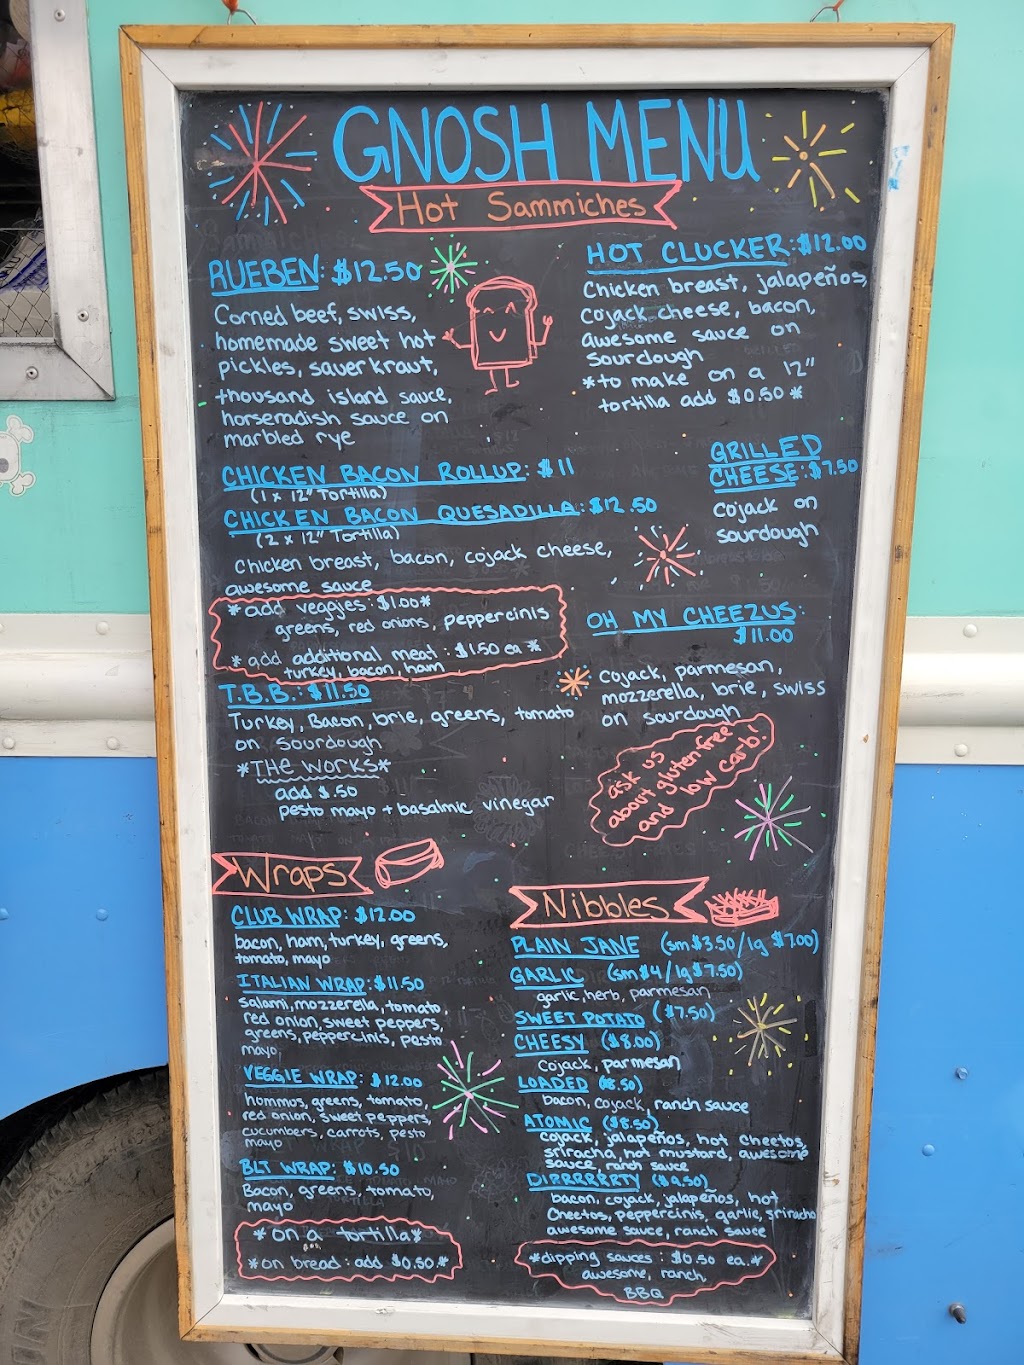 GNOSH MENU
Hot Sammiches
RUEBEN: $12.50
Corned beef, swiss,
homemade sweet hot
pickles, sauerkraut,
thousand island sauce,
horseradish sauce on
marbled rye
HOT CLUCKER: $12.00
Chicken breast, jalapeños,
cojack cheese, bacon,
awesome sauce on
sourdough
*to make on a 12"
tortilla add $0.50*
CHICKEN BACON ROLLUP: $11
(1 x 12" Tortilla)
CHICKEN BACON QUESADILLA: $12.50
(2 x 12" Tortilla)
Chicken breast, bacon, cojack cheese,
awesome sauce
*add veggies: $1.00*
greens, red onions, peppercinis
*add additional meat: $1.50 ea*
turkey, bacon, ham
GRILLED
CHEESE: $7.50
Cojack on
sourdough
T.B.B.: $11.50
Turkey, Bacon, brie, greens, tomato
on sourdough
*THE WORKS*
add $.50
pesto mayo + basalmic vinegar
OH MY CHEEZUS:
$11.00
Cojack, parmesan,
mozzerella, brie, swiss
on sourdough
ask us
about gluten-free
and low carb!
Wraps
CLUB WRAP: $12.00
bacon, ham, turkey, greens,
tomato, mayo
ITALIAN WRAP: $11.50
salami, mozzerella, tomato,
red onion, sweet peppers,
greens, peppercinis, pesto
mayo,
VEGGIE WRAP: $12.00
hommos, greens, tomato,
red onion, sweet peppers,
cucumbers, carrots, pesto
mayo
BLT WRAP: $10.50
Bacon, greens, tomato,
mayo
*on a tortilla*
*on bread: add $0.50*
Nibbles
PLAIN JANE (sm $3.50/lg $7.00)
GARLIC (sm $4/lg $7.50)
garlic, herb, parmesan
SWEET POTATO ($7.50)
CHEESY ($8.00)
Cojack, parmesan
LOADED ($8.50)
bacon, cojack, ranch sauce
ATOMIC ($8.50)
cojack, jalapeños, hot cheetos,
sriracha, hot mustard, awesome
sauce, ranch sauce
DIRRRRRRTY ($9.50)
bacon, cojack, jalapeños, hot
Cheetos, peppercinis, garlic, sriracha
awesome sauce, ranch sauce
*dipping sauces: $0.50 ea.*
awesome, ranch,
BBQ